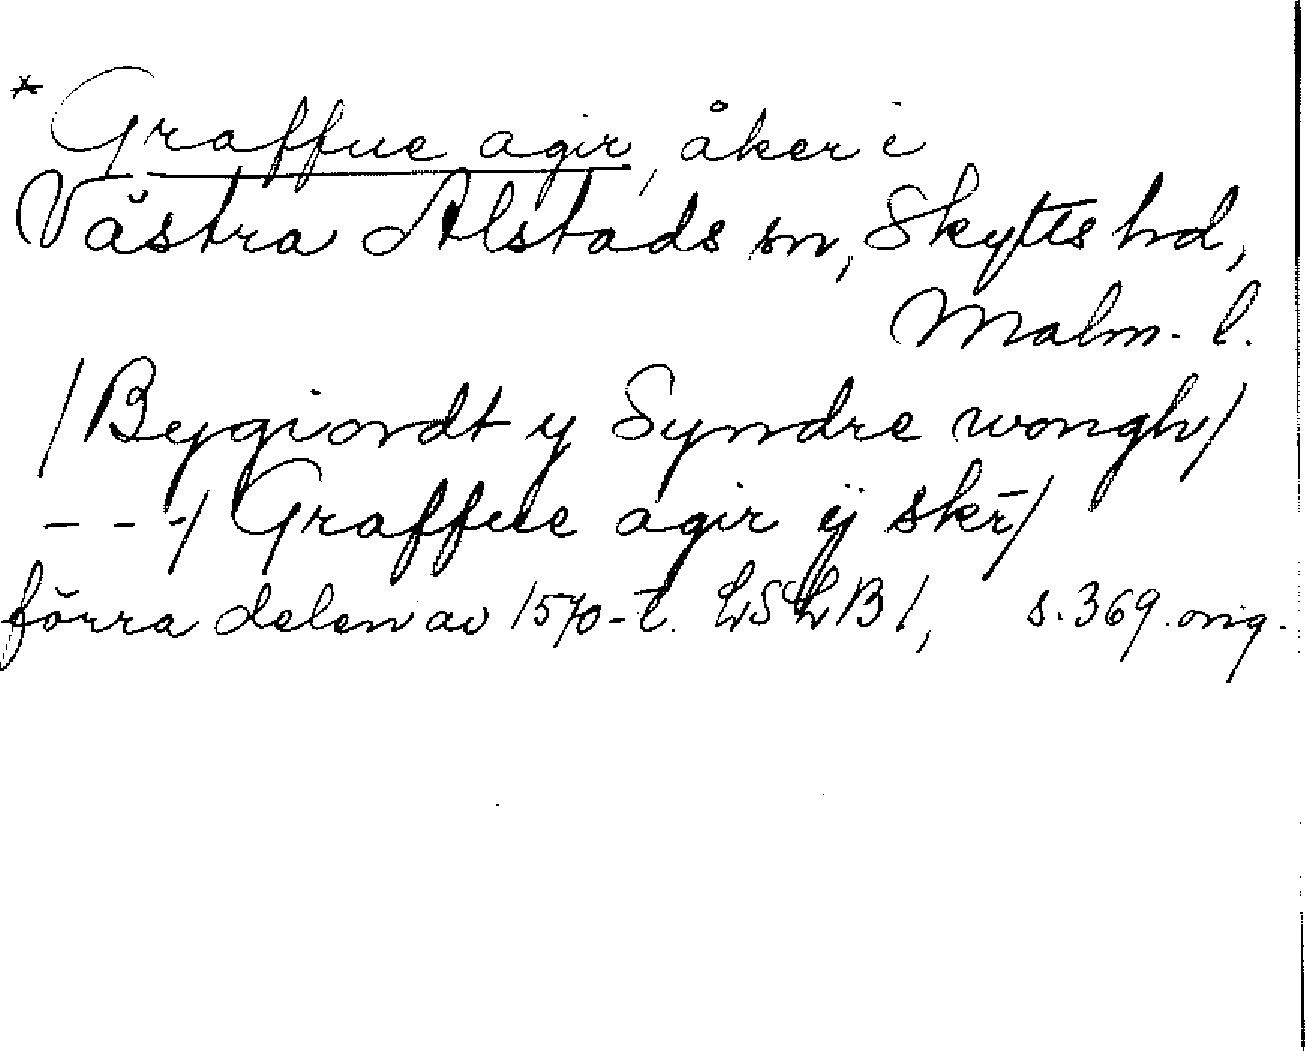 * Graffue agir, åker i
Västra Alstads sn, Skytts hd,
Malm. l.
/Bygiordt y Syndre wongh/
- - -/ Graffue agir ÿ skr̄/
förra delen av 1570-t. LSLB 1, s. 369. orig.